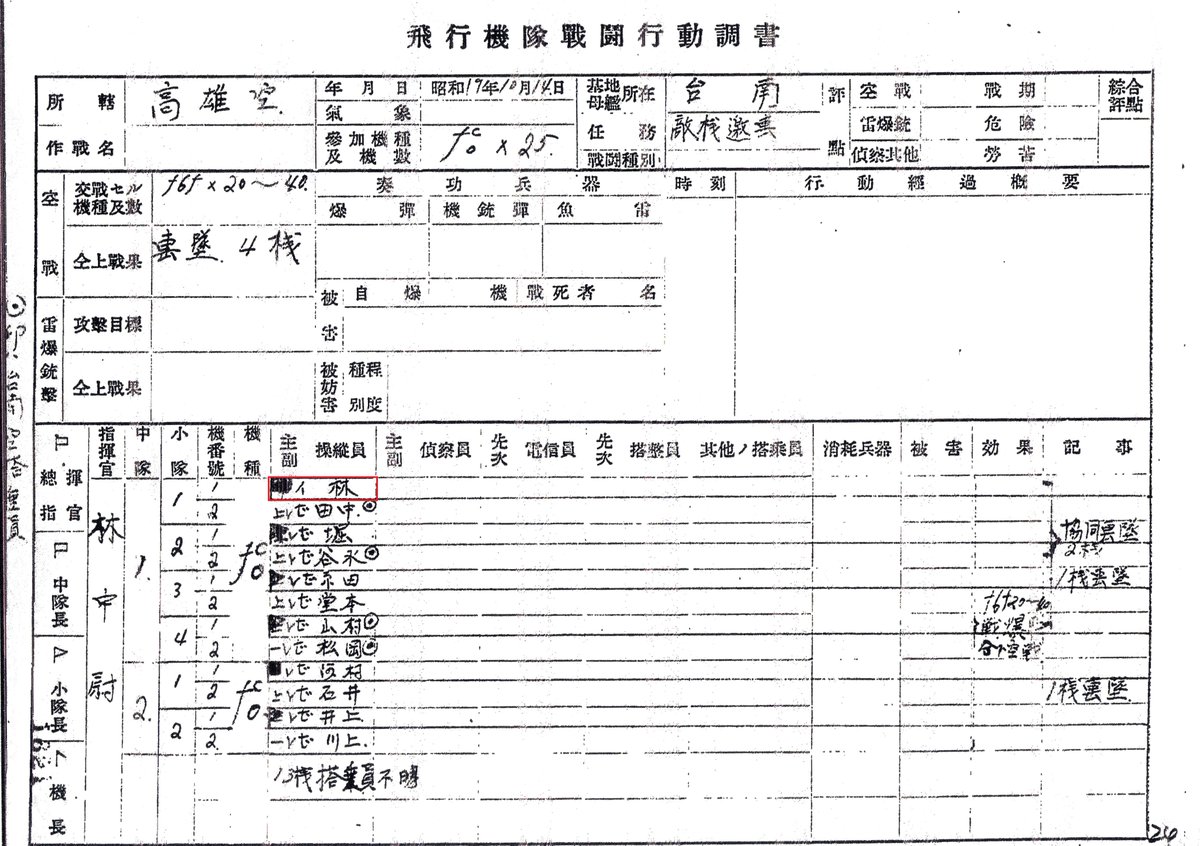 飛行機隊戰闘行動調書
所轄 高雄空. 年月日 昭和19年10月14日 基地母艦所在 台南 評點 空戰 戰期 綜合評點
氣象 任務 敵棧邀撃 雷爆銃 危險
作戰名 參加機種及機數 fc0×25. 戰闘種別 偵察其他 勞苦
空戰 交戰セル機種及數 f6f×20〜40. 奏功兵器 時刻 行動經過概要
爆彈 機銃彈 魚雷
仝上戰果 撃墜 4棧
被害 自爆機 戰死者名
雷爆銃擊 攻擊目標
仝上戰果 被妨害 種別 程度
指揮官 中隊 小隊 機番號 機種 主副 操縦員 主副 偵察員 先次 電信員 先次 搭整員 其他ノ搭乘員 消耗兵器 被害 効果 記事
總指揮官
中隊長
小隊長
機長
林中尉
1. fc0
1 1 林
2 上 田中.⊙
2 1 堀 協同撃墜 2棧
2 上 谷永⊙
3 1 田 1棧撃墜
2 上 堂本
4 1 山村⊙
2 一 松岡⊙
2. fc0
1 1 河村
2 上 石井 1棧撃墜
2 1 井上
2. 一 川上.
f6f20〜40
戦爆
空戦
13棧搭乗員不明
24